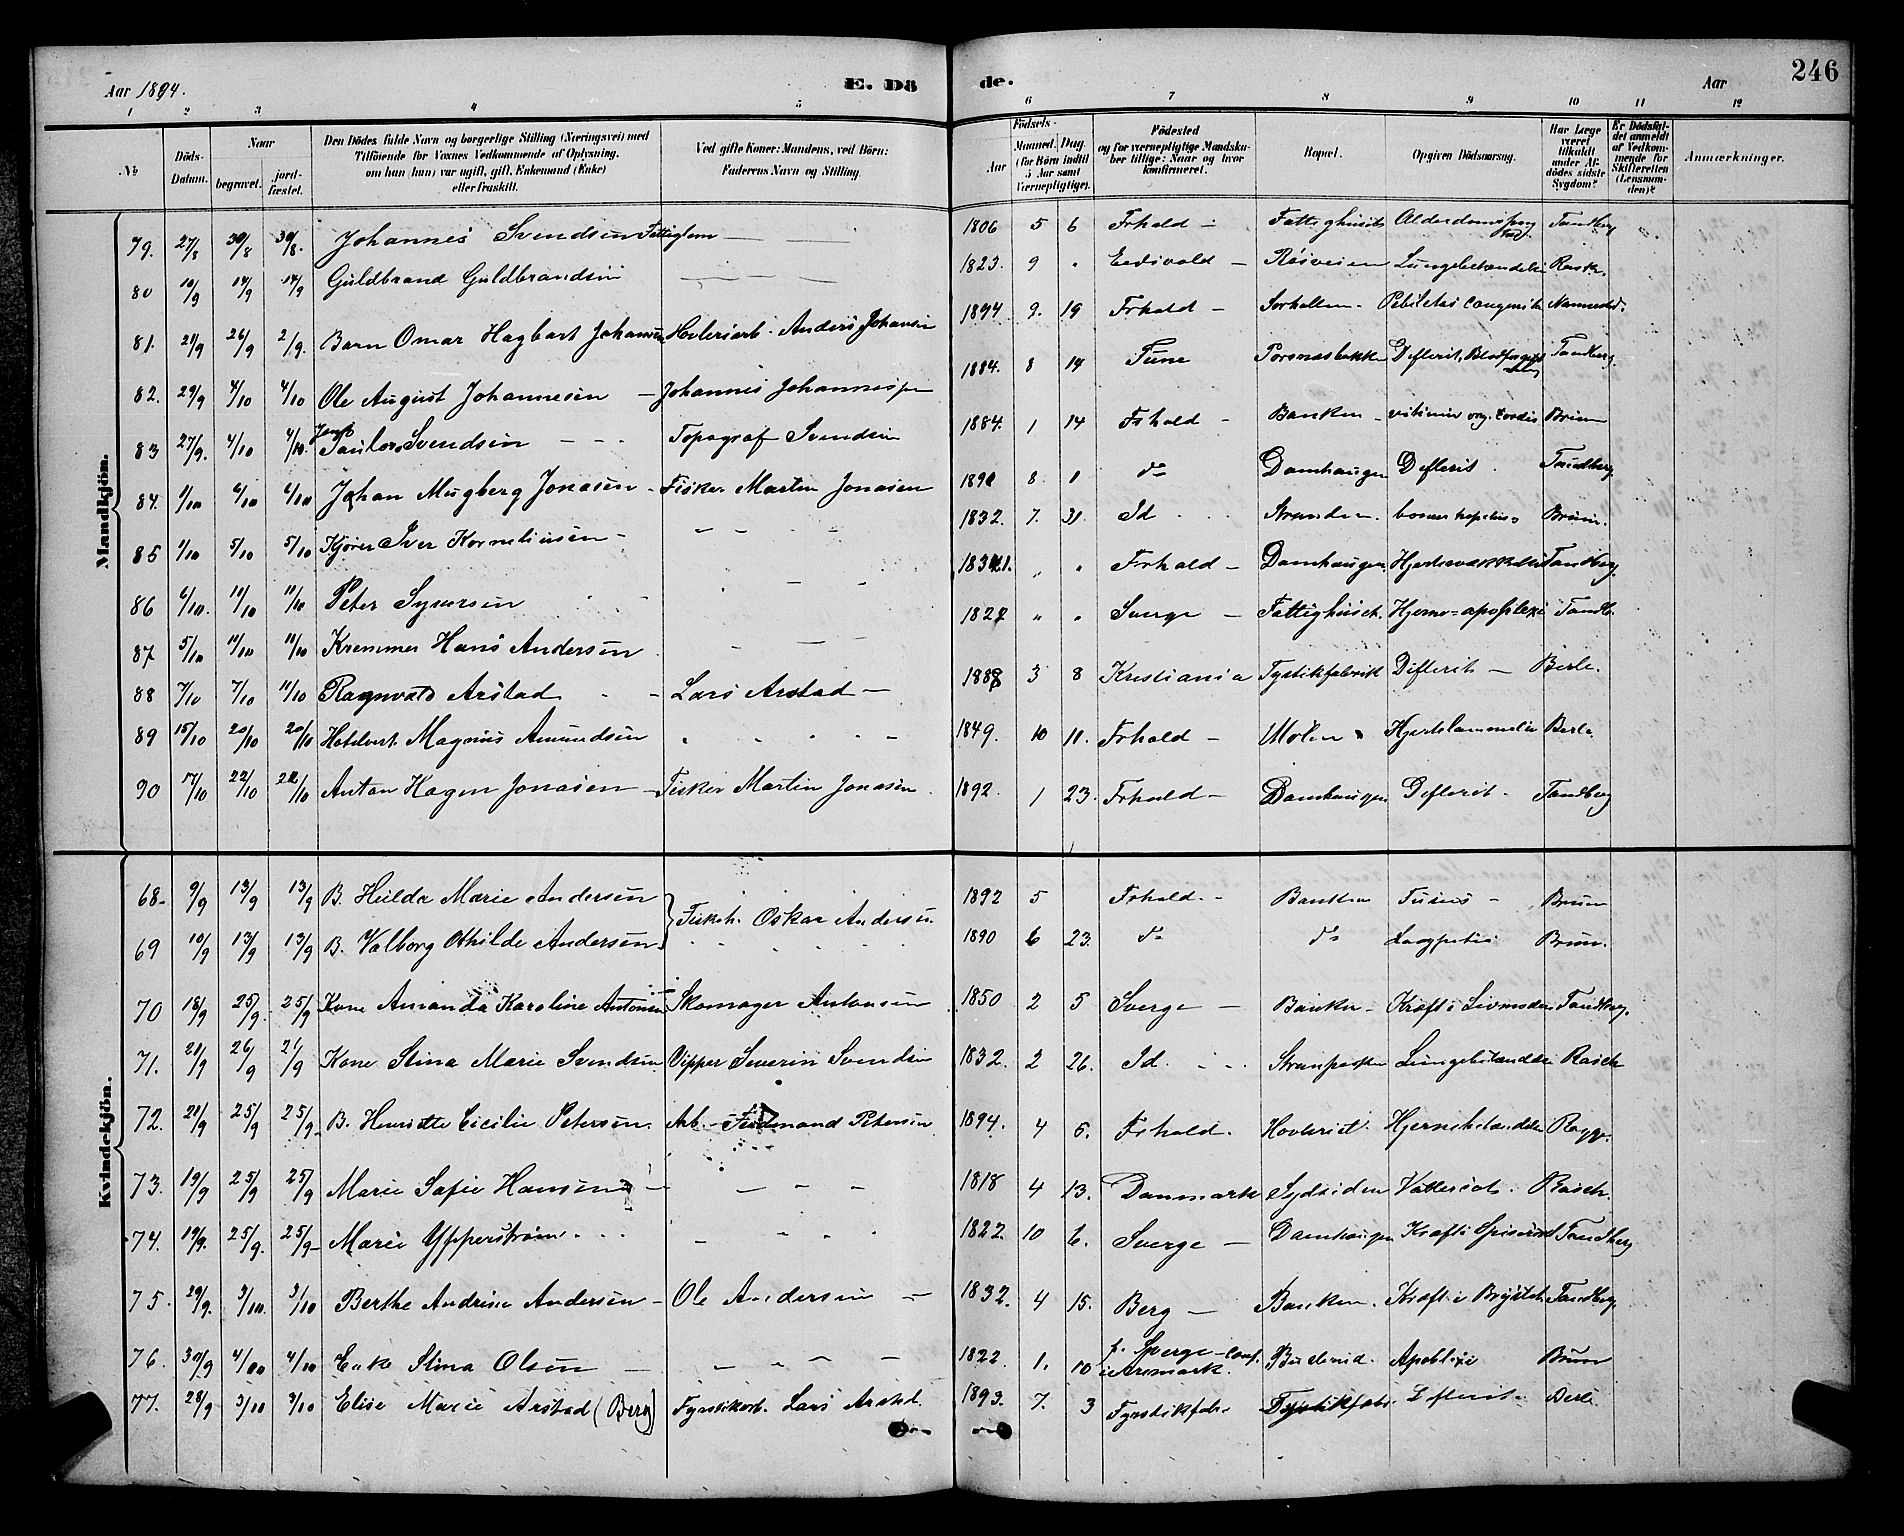 Aar 1894. E. Dö
de. Aar 246
1 2 3 4 5 6 7 8 9 10 11 12
No Döds-Datum. Naar begravet. jord-fæstet. Den Dödes fulde Navn og borgerlige Stilling (Næringsvei) med Tilföiende for Voxnes Vedkommende af Oplysning, om han (hun) var ugift, gift, Enkemand (Enke) eller fraskilt. Ved gifte Koner: Mandens, ved Börn: Faderens Navn og Stilling. Födsels- Aar Maaned. Dag. (for Börn indtil 5 Aar samt Værnepligtige). Födested og for værnepligtige Mandskaber tillige: Naar og hvor konfirmeret. Bopæl. Opgiven Dödsaarsag. Har Læge været tilkaldt under Afdödes sidste Sygdom? Er Dödsfaldet anmeldt af Vedkommende for Skifteretten (Lensmanden)? Anmærkninger.
Mandkjön.
79. 27/8 30/8 30/8. Johannes Svendsen Fattiglem 1806 5 6 Frhald Fattighuset Alderdoms Tandberg
80 10/9 14/9 14/9 Guldbrand Guldbrandsen 1823. 9 " Eidsvold Risveien Lungebetændelse Rasch.
81. 21/9 26/9 2/9. Barn Omar Hagbart Johansen Høvleriarb. Anders Johansen 1894 9. 19 Frhald Sorhallen
82. 29/9 4/10 4/10 Ole August Johannesen Johannes Johannesen 1884. 8 14 Tune Difterit, Tandberg.
83 27/9. 4/10 4/10. Svendsen Topograf Svendsen 1884. 1 14 Frhald Banken vitium org. cordis Bruun
84. 1/10 6/10 6/10 Johan Mugberg Jonasen Fisker Martin Jonasen 8. 1 do Damhaugen Difterit. Tandberg
85 1/10 5/10 5/10 Kjører Iver Korneliusen 1832. 7. 31. Id Stranden. Bruun.
86 6/10. 11/10 11/10 Peter Syversen " " Frhald Damhaugen Tandberg.
87 5/10 11/10 11/10 Kræmmer Hans Andersen 1827 " " Sverge Fattighuset. Hjerne-apoplexi Tandb.
88 7/10 7/10 11/10 Ragnvald Arstad Lars Arstad 1888 3 8 Kristiania Fystikfabrik Difterit Berle.
89 15/10 20/10 20/10 Magnus Amundsen 1849. 10 11. Frhald Mølen Hjertelammelse Berle.
90 17/10 22/10 22/10 Anton Hagen Jonasen Fisker Martin Jonasen 1892. 1 23. Frhald Damhaugen Difterit. Tandberg
Kvindekjön.
68. 9/9 13/9 13/9 B. Hulda Marie Andersen Fiskeh. Oskar Andersen 1892 5 Frhald. Banken Bruun
69 10/9 13/9 13/9 B. Valborg Othilde Andersen 1890 6 23. do do Bruun.
70 18/9 25/9. 25/9 Kone Amanda Karoline Antonsen Skomager Antonsen 1850 2 5 Sverge Banken Kræft i Livmoder Tandberg.
71. 21/9 26/9 21/9 Kone Stina Marie Svendsen Vipper Severin Svendsen 1832. 2 26. Id. Lungebetændelse Rasch
72. 21/9 25/9 25/9 B. Henriette Cicilie Petersen. Arb. Ferdinand Petersen 1894. 4 6. Frhald. Hovleriet. Hjernebetændelse
73. 19/9 25/9 25/9 Marie Sofie Hansen 1818 4 13. Danmark Sydsiden Vattersot. Rasch.
74. 19/9. 25/9. 25/9 Marie Ypperstrøm 1822. 10 6. Sverge Damhaugen Kræft i Spiserør Tandberg
75. 29/9. 3/10. 3/10 Berthe Andrine Andersen Ole Andersen 1832. 4 15. Berg Banken. Kræft i Brystet Tandberg
76. 30/9 4/10 4/10 Enke Stina Olsen 1822 1. 10 f. Sverge conf. i Aremark. Apoblexi Bruun
77. 28/9 3/10 3/10 Elise Marie Arstad (Berg) Fyrstikarb. Lars Arstad. 1893. 7. 3 Fyrstikfabr. Fyrstikfabr. Difterit Berle.